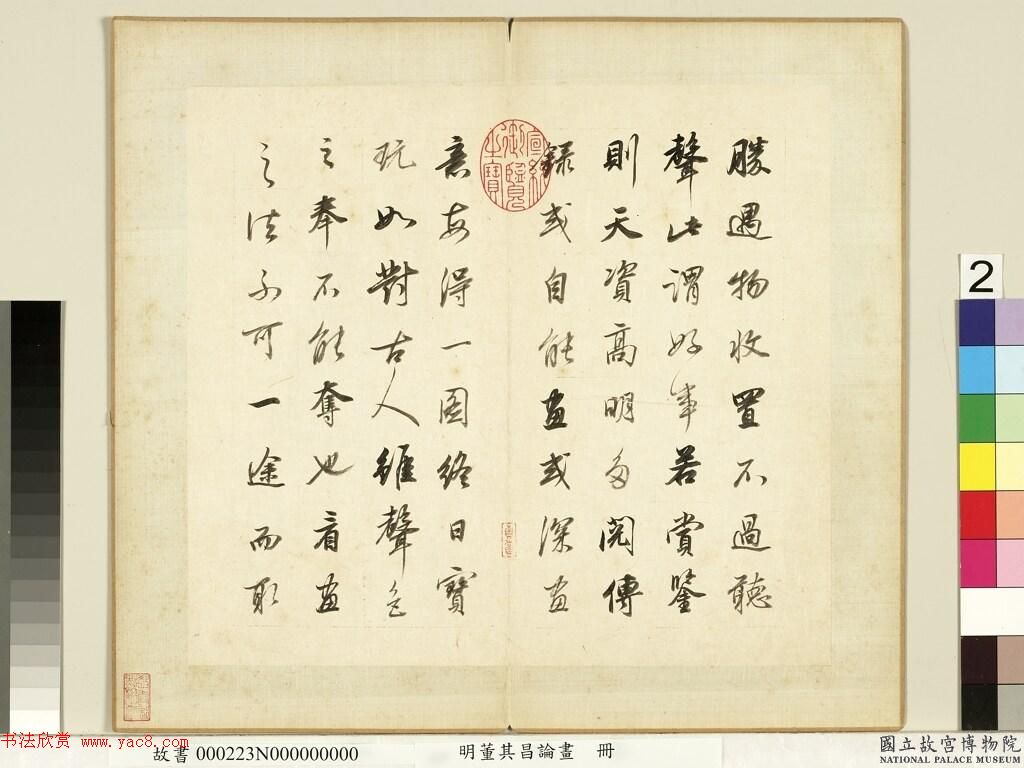 勝遇物收置不過聽
聲此謂好事若賞鑒
則天資高明多閱傳
錄或自能畫或深畫
意每得一圖終日寶
玩如對古人雖聲色
之奉不能奪也看畫
之法不可一途而取
宣統御覽之寶
2
书法欣赏 www.yac8.com
故書 000223N000000000
明董其昌論畫 冊
國立故宮博物院
NATIONAL PALACE MUSEUM